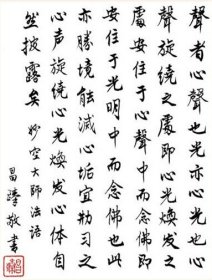 聲者心聲也光者心光也心
聲旋繞之處即心光煥发之
處安住于心聲中而念佛即
安住于光明中而念佛也此
亦勝境能滅心垢宜勤習之
心声旋繞心光煥发心体自
然披露矣 妙空大師法語
昌臻敬書